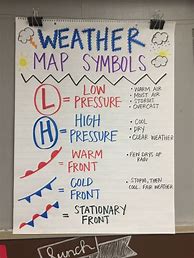 WEATHER
MAP SYMBOLS
L = LOW PRESSURE
• WARM AIR
• MOIST AIR
• STORMY
• OVERCAST
H = HIGH PRESSURE
• COOL
• DRY
• CLEAR WEATHER
= WARM FRONT
• FEW DAYS OF RAIN
= COLD FRONT
• STORM, THEN COOL, FAIR WEATHER
= STATIONARY FRONT
lunch